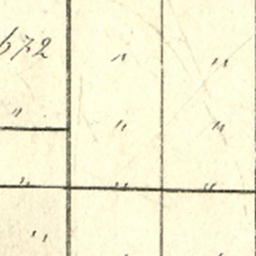 672 " "
" " "
" " "
"